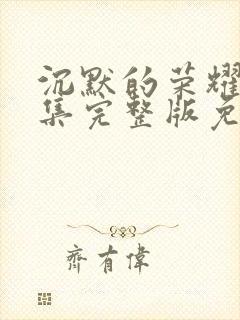 沉默的荣耀
集完整版免
齊有偉